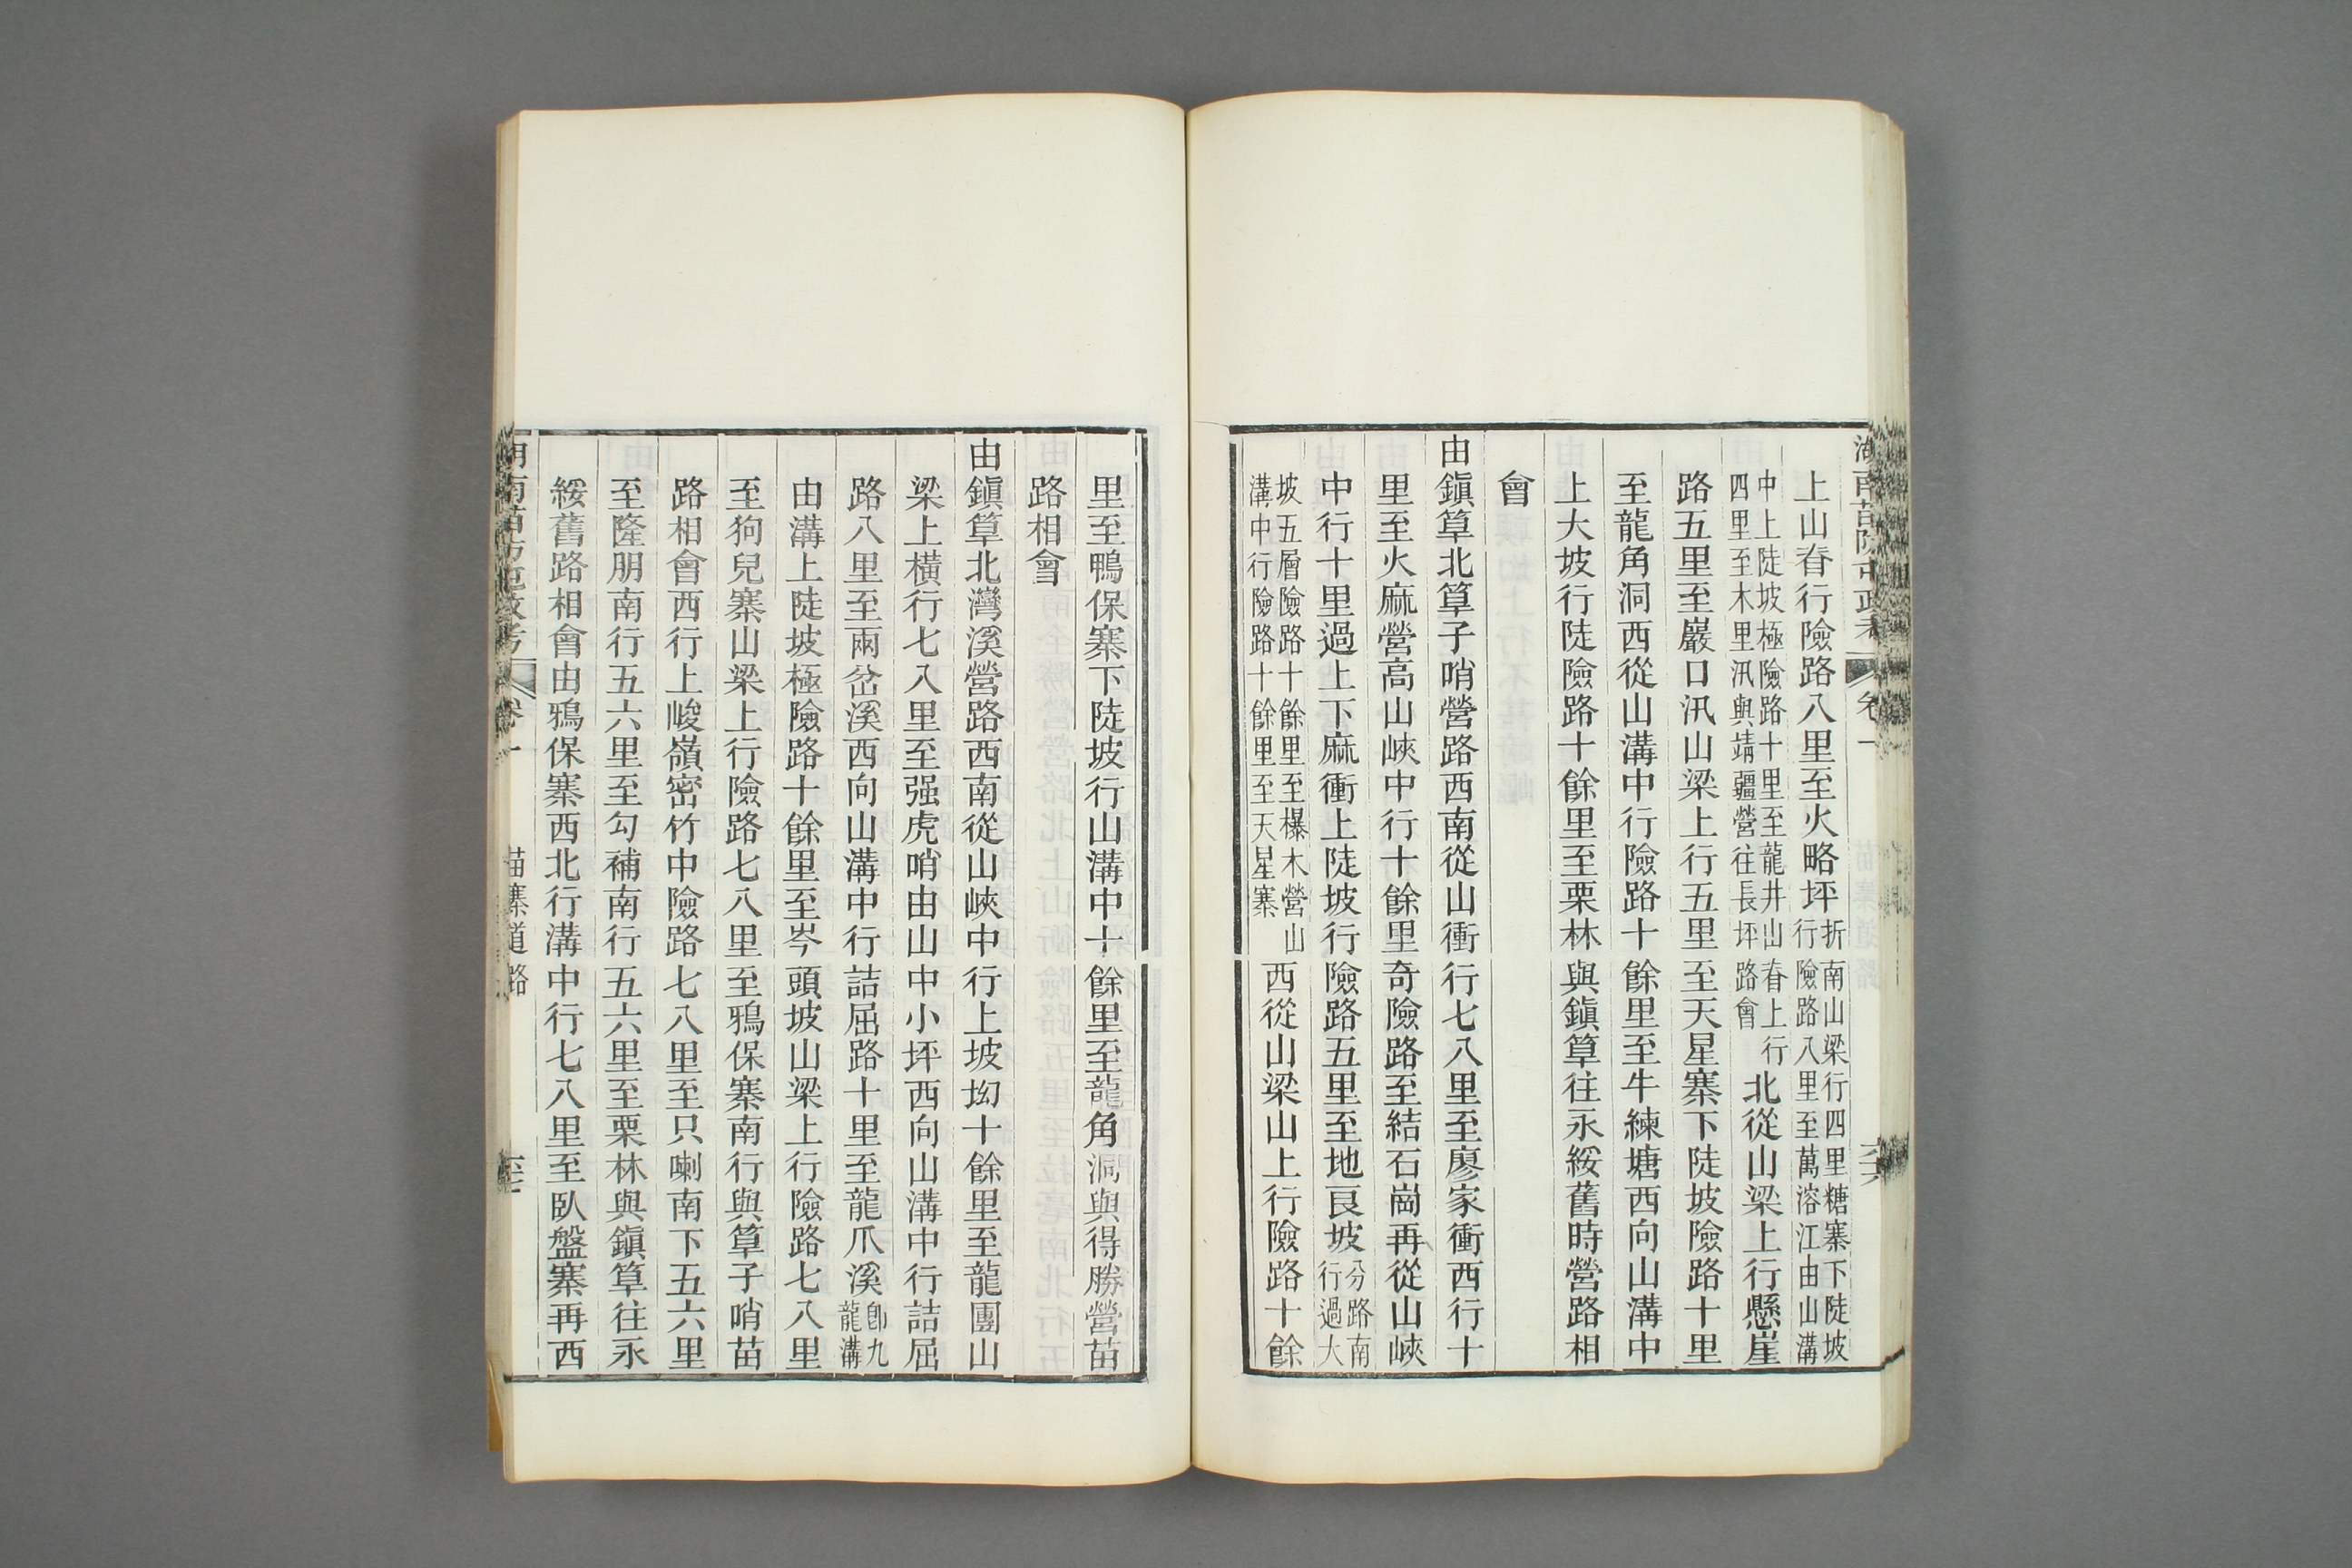 上山脊行險路八里至火略坪折南山梁行四里糖寨下陡坡行險路八里至萬溶江由山溝
中上陡坡極險路十里至龍井山脊上行四里至木里汛與靖疆營往長坪路會北從山梁上行懸崖
路五里至巖口汛山梁上行五里至天星寨下陡坡險路十里
至龍角洞西從山溝中行險路十餘里至牛練塘西向山溝中
上大坡行陡險路十餘里至栗林與鎮筸往永綏舊時營路相
會
由鎮筸北筸子哨營路西南從山衝行七八里至廖家衝西行十
里至火麻營高山峽中行十餘里奇險路至結石崗再從山峽
中行十里過上下麻衝上陡坡行險路五里至地良坡分路南行過大
坡五層險路十餘里至欙木營山溝中行險路十餘里至天星寨西從山梁山上行險路十餘
湖南苗防屯政考 卷一 六六
里至鴨保寨下陡坡行山溝中十餘里至龍角洞與得勝營苗
路相會
由鎮筸北灣溪營路西南從山峽中行上坡坳十餘里至龍團山
梁上橫行七八里至强虎哨由山中小坪西向山溝中行詰屈
路八里至兩岔溪西向山溝中行詰屈路十里至龍爪溪卽九龍溝
由溝上陡坡極險路十餘里至岑頭坡山梁上行險路七八里
至狗兒寨山梁上行險路七八里至鴉保寨南行與筸子哨苗
路相會西行上峻嶺密竹中險路七八里至只喇南下五六里
至隆朋南行五六里至勾補南行五六里至栗林與鎮筸往永
綏舊路相會由鴉保寨西北行溝中行七八里至臥盤寨再西
湖南苗防屯政考 卷一 苗寨道路